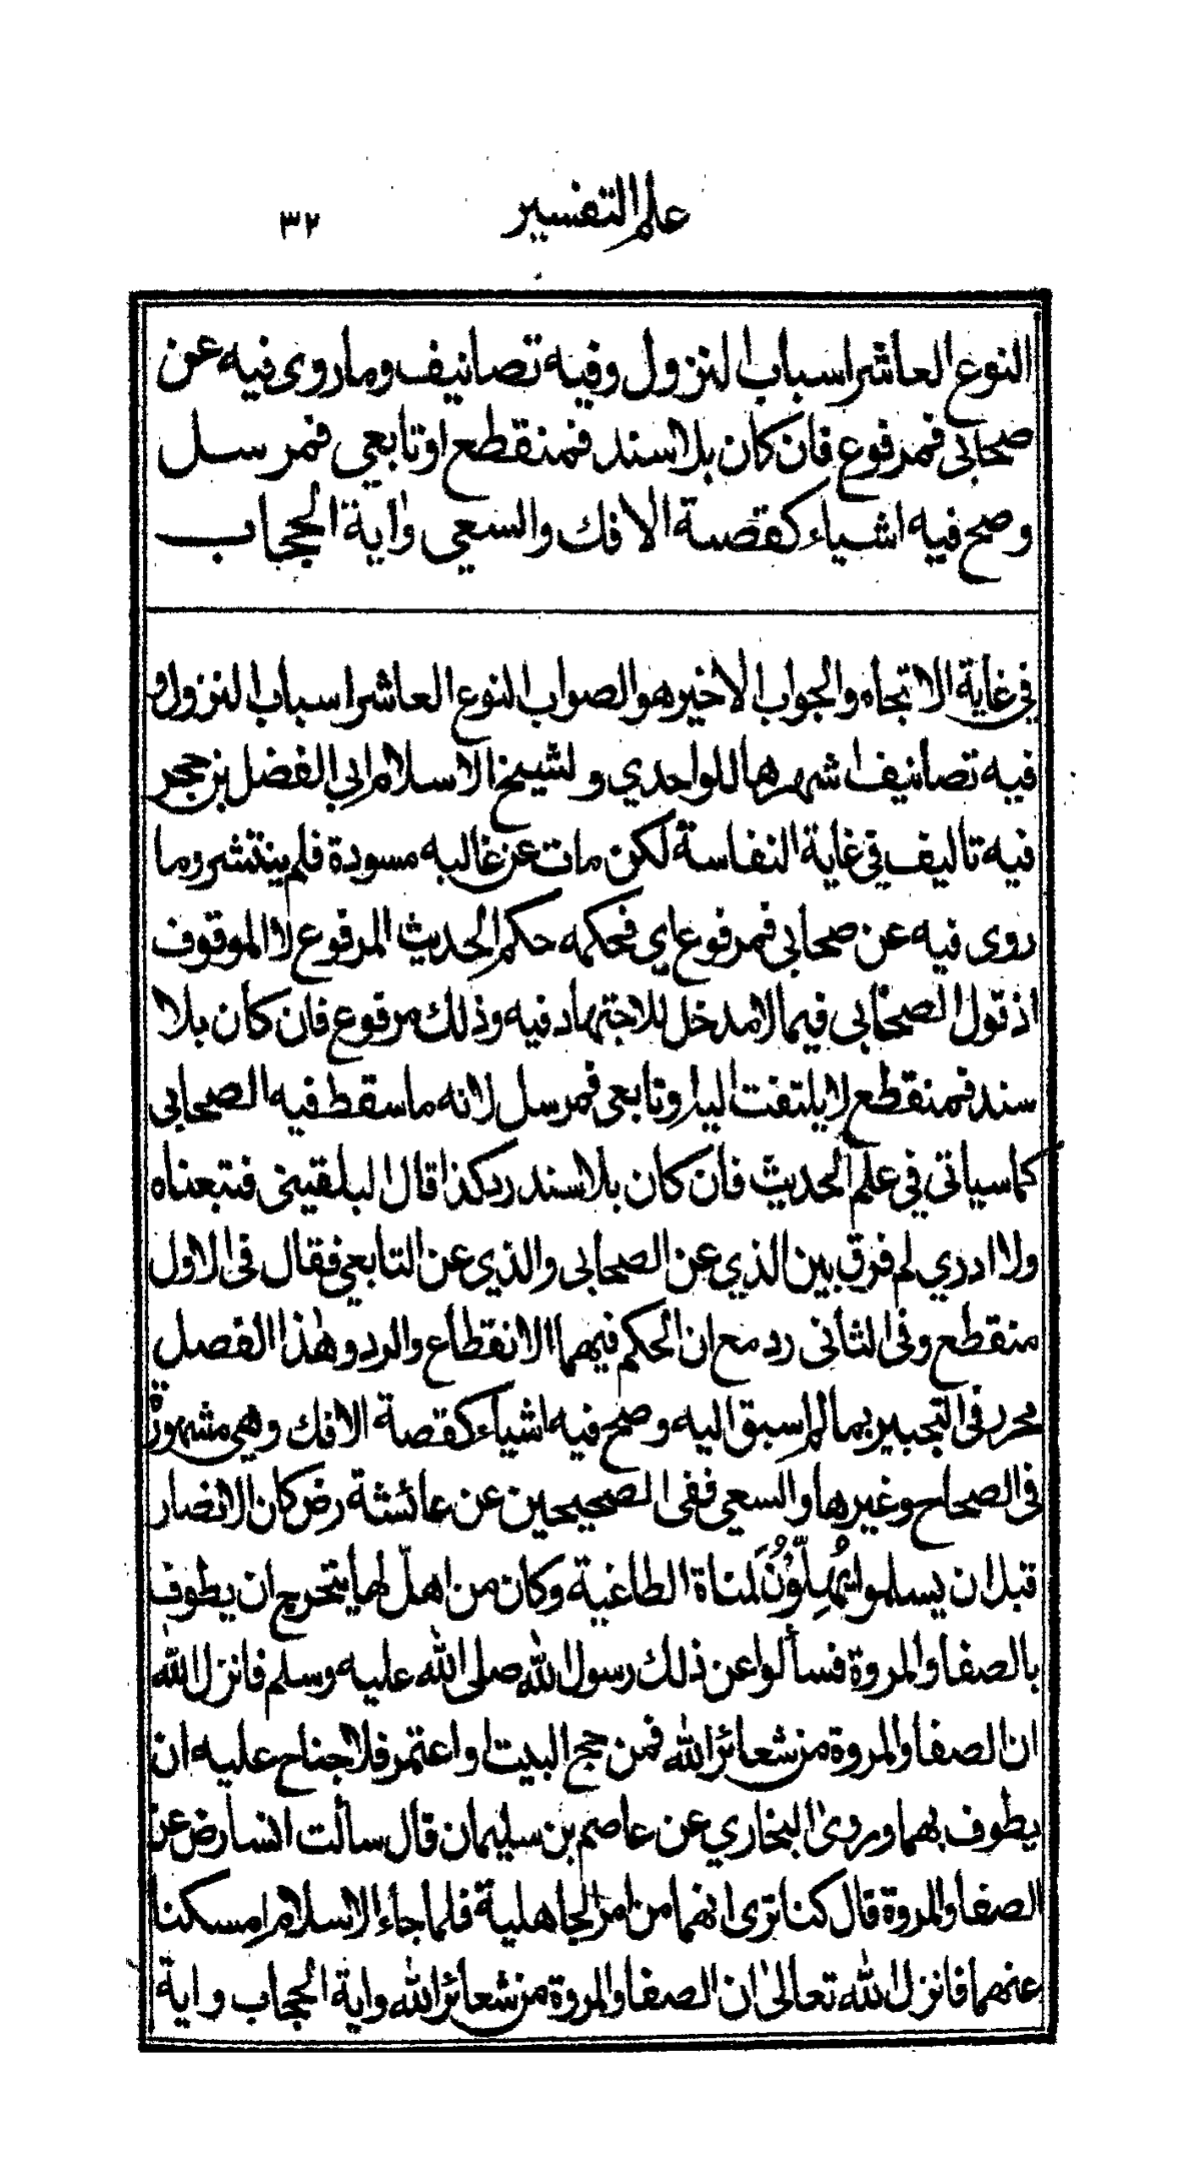 علم التفسير
٣٢
النوع العاشر اسباب النزول وفيه تصانيف وما روى فيه عن
صحابى فمرفوع فان كان بلا سند فمنقطع او تابعي فمرسل
وصح فيه اشياء كقصة الافك والسعي واٰية الحجاب
في غاية الاتجاه والجواب الاخير هو الصواب النوع العاشر اسباب النزول و
فيه تصانيف اشهرها للواحدي ولشيخ الاسلام ابي الفضل بن حجر
فيه تاليف في غاية النفاسة لكن مات عن غالبه مسودة فلم ينتشر وما
روى فيه عن صحابي فمرفوع اي فحكمه حكم الحديث المرفوع لا الموقوف
اذ قول الصحابى فيما لا مدخل للاجتهاد فيه وذلك مرفوع فان كان بلا
سند فمنقطع لا يلتفت اليه او تابعى فمرسل لانه ما سقط فيه الصحابي
كما سياتى في علم الحديث فان كان بلا سند رد كذا قال البلقينى فتبعناه
ولا ادري لم فرق بين الذي عن الصحابى والذي عن التابعي فقال فى الاول
منقطع وفى الثانى رد مع ان الحكم فيهما الانقطاع والرد وهٰذا الفصل
محرر فى التحبير بما لم اسبق اليه وصح فيه اشياء كقصة الافك وهي مشهورة
فى الصحاح وغيرها والسعي ففى الصحيحين عن عائشة رض كان الانصار
قبل ان يسلموا يُهِلّوْنَ لمناة الطاغية وكان من اهلّ لها يتحرج ان يطوف
بالصفا والمروة فسألوا عن ذلك رسول الله صلى الله عليه وسلم فانزل الله
ان الصفا والمروة من شعائر الله فمن حج البيت او اعتمر فلا جناح عليه ان
يطوف بهما وروىٰ البخاري عن عاصم بن سليمان قال سألت انسا رض عن
الصفا والمروة قال كنا نرى انهما من امر الجاهلية فلما جاء الاسلام امسكنا
عنهما فانزل الله تعالىٰ ان الصفا والمروة من شعائر الله واية الحجاب واية